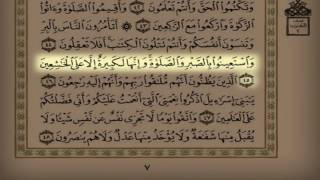 وَتَكْتُمُوا۟ ٱلْحَقَّ وَأَنتُمْ تَعْلَمُونَ ٤٢ وَأَقِيمُوا۟ ٱلصَّلَوٰةَ وَءَاتُوا۟
ٱلزَّكَوٰةَ وَٱرْكَعُوا۟ مَعَ ٱلرَّٰكِعِينَ ٤٣ أَتَأْمُرُونَ ٱلنَّاسَ بِٱلْبِرِّ
وَتَنسَوْنَ أَنفُسَكُمْ وَأَنتُمْ تَتْلُونَ ٱلْكِتَٰبَ أَفَلَا تَعْقِلُونَ ٤٤
وَٱسْتَعِينُوا۟ بِٱلصَّبْرِ وَٱلصَّلَوٰةِ وَإِنَّهَا لَكَبِيرَةٌ إِلَّا عَلَى ٱلْخَٰشِعِينَ
٤٥ ٱلَّذِينَ يَظُنُّونَ أَنَّهُم مُّلَٰقُوا۟ رَبِّهِمْ وَأَنَّهُمْ إِلَيْهِ رَٰجِعُونَ ٤٦
يَٰبَنِىٓ إِسْرَٰٓءِيلَ ٱذْكُرُوا۟ نِعْمَتِىَ ٱلَّتِىٓ أَنْعَمْتُ عَلَيْكُمْ وَأَنِّى فَضَّلْتُكُمْ
عَلَى ٱلْعَٰلَمِينَ ٤٧ وَٱتَّقُوا۟ يَوْمًا لَّا تَجْزِى نَفْسٌ عَن نَّفْسٍ شَيْـًٔا وَلَا
يُقْبَلُ مِنْهَا شَفَٰعَةٌ وَلَا يُؤْخَذُ مِنْهَا عَدْلٌ وَلَا هُمْ يُنصَرُونَ ٤٨
٧